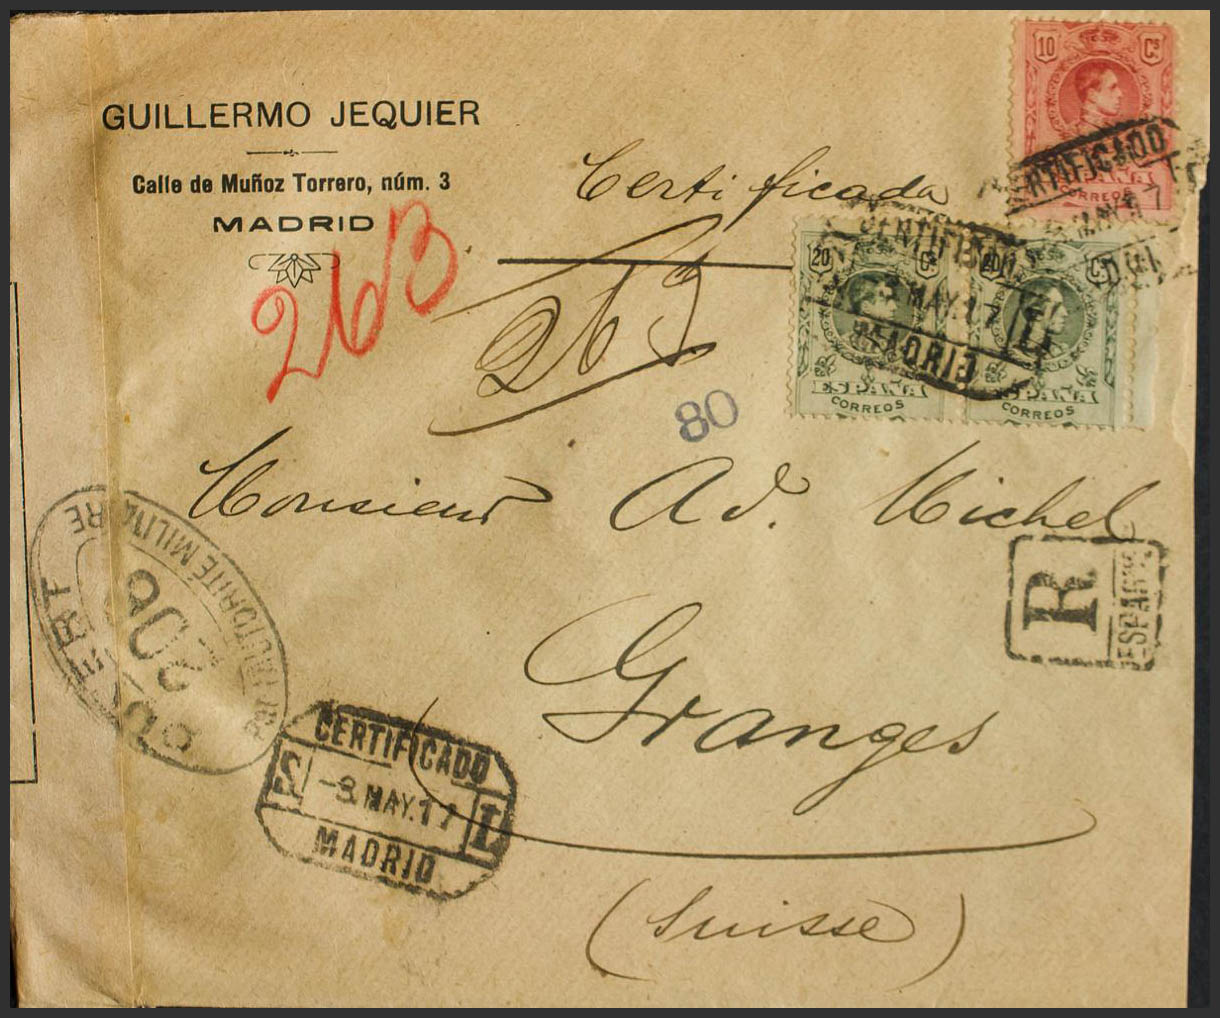 GUILLERMO JEQUIER
Calle de Muñoz Torrero, núm. 3
MADRID
Certificada
263
263
80
10 Cs
CERTIFICADO
MAY.17
ESPAÑA
CORREOS
20 Cs
20 Cs
CERTIFICADO
3 MAY.17
L
MADRID
ESPAÑA
CORREOS
ESPAÑA
CORREOS
Monsieur Ad. Michel
R
ESPAGNE
Granges
(Suisse)
OUVERT
206
PAR L'AUTORITÉ MILITAIRE
CERTIFICADO
2 -3.MAY.17 L
MADRID